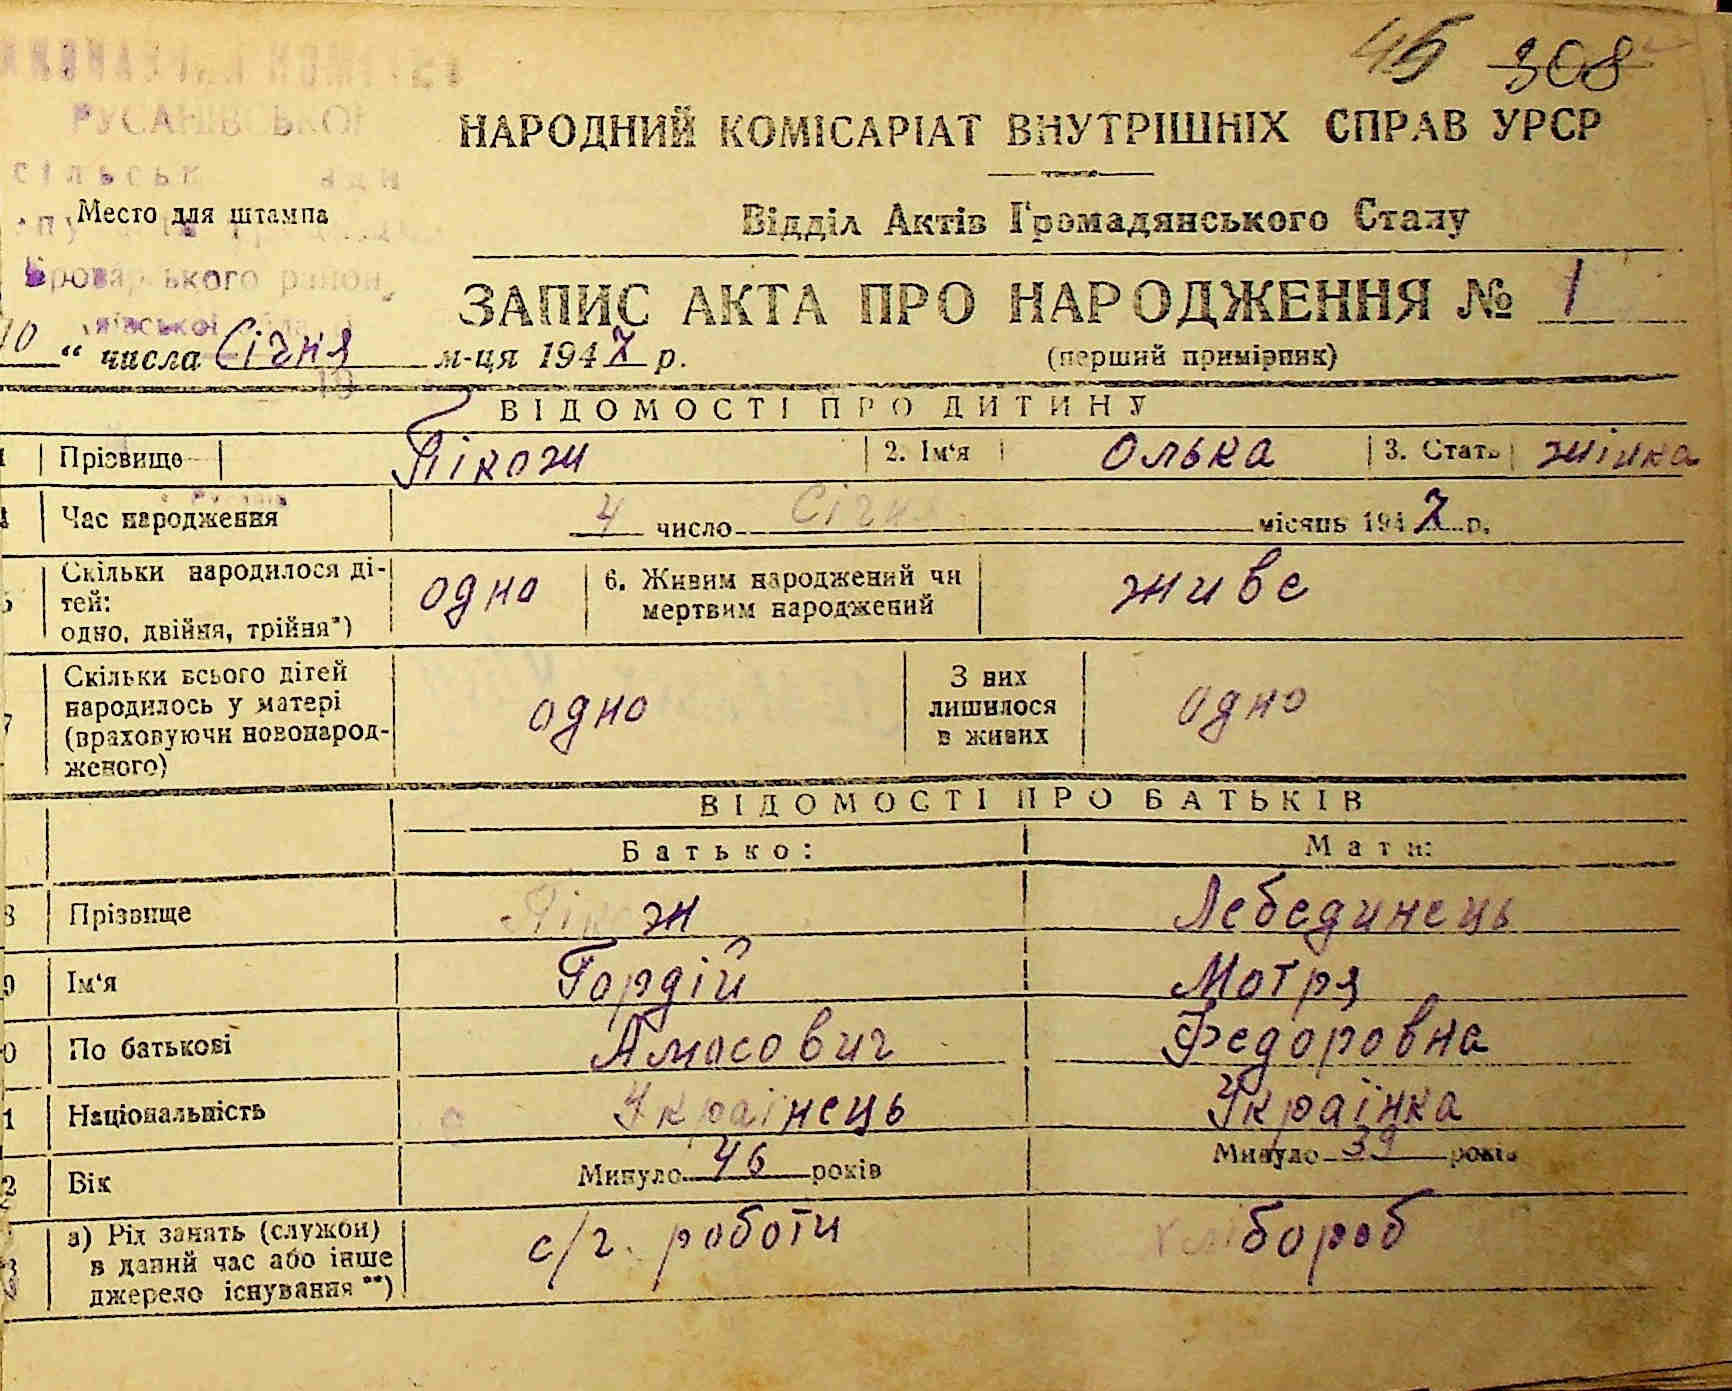 46 308
РУСАНІВСЬКОЇ
НАРОДНИЙ КОМІСАРІАТ ВНУТРІШНІХ СПРАВ УРСР
Место для штампа
Відділ Актів Громадянського Стану
Броварського району
ЗАПИС АКТА ПРО НАРОДЖЕННЯ № 1
10 “ числа Січня м-ця 1947 р.
(перший примірник)
ВІДОМОСТІ ПРО ДИТИНУ
Прізвище Пікож 2. Ім'я Олька 3. Стать жінка
Час народження 4 число Січня місяць 1947 р.
Скільки народилося ді-
тей:
одно, двійня, трійня*) одно 6. Живим народжений чи
мертвим народжений живе
Скільки всього дітей
народилось у матері
(враховуючи новонарод-
женого) одно З них
лишилося
в живих одно
ВІДОМОСТІ ПРО БАТЬКІВ
Батько: Мати:
8 Прізвище Пікож Лебединець
9 Ім'я Гордій Мотря
0 По батькові Амосович Федоровна
1 Національність Українець Українка
2 Вік Минуло 46 років Минуло 39 років
3 а) Рід занять (служби)
в даний час або інше
джерело існування **) с/г. роботи хлібороб